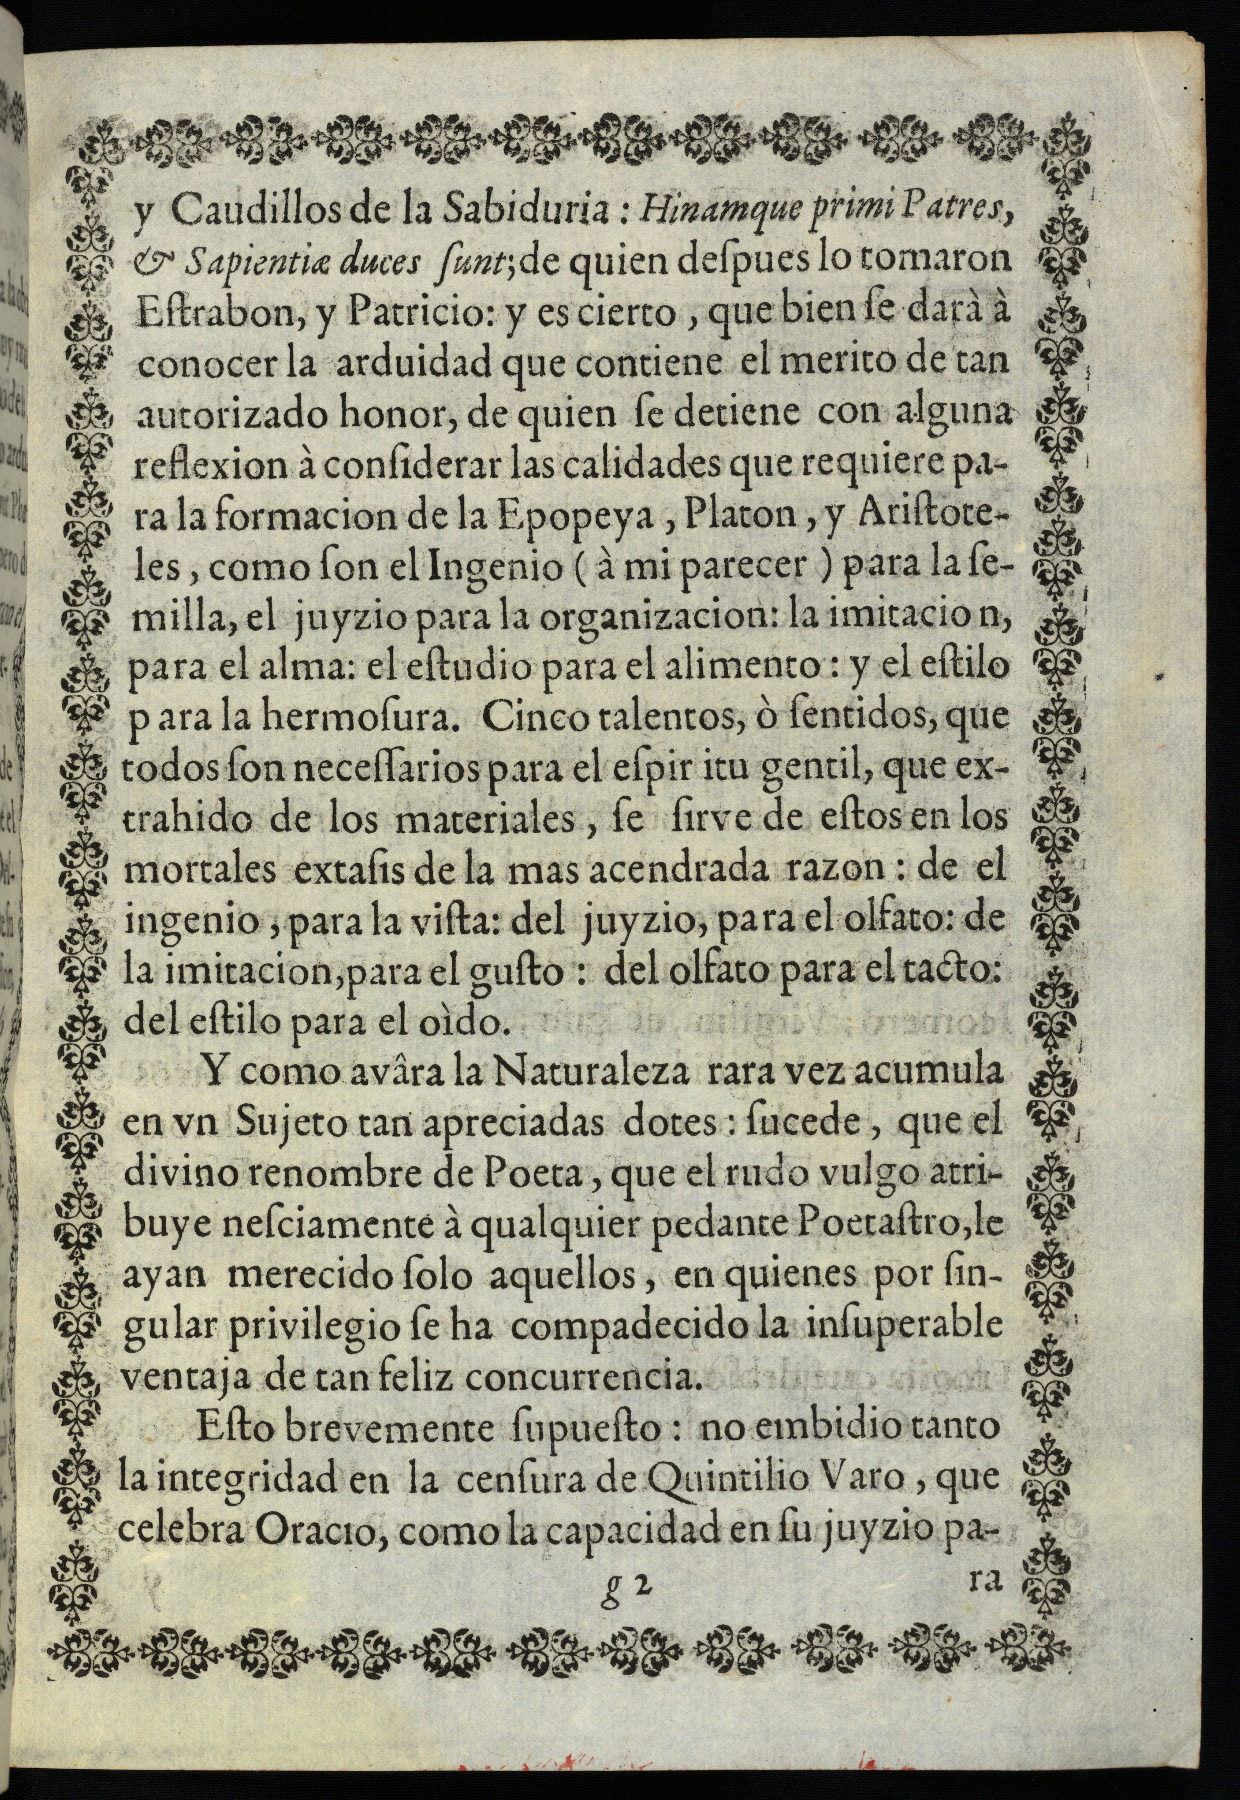 y Caudillos de la Sabiduria : Hinamque primi Patres,
& Sapientiæ duces ſunt;de quien deſpues lo tomaron
Eſtrabon, y Patricio: y es cierto , que bien ſe darà à
conocer la arduidad que contiene el merito de tan
autorizado honor, de quien ſe detiene con alguna
reflexion à conſiderar las calidades que requiere pa-
ra la formacion de la Epopeya , Platon , y Ariſtote-
les , como ſon el Ingenio ( à mi parecer ) para la ſe-
milla, el juyzio para la organizacion: la imitacio n,
para el alma: el eſtudio para el alimento : y el eſtilo
p ara la hermoſura. Cinco talentos, ò ſentidos, que
todos ſon neceſſarios para el eſpir itu gentil, que ex-
trahido de los materiales , ſe ſirve de eſtos en los
mortales extaſis de la mas acendrada razon : de el
ingenio , para la viſta: del juyzio, para el olfato: de
la imitacion,para el guſto : del olfato para el tacto:
del eſtilo para el oìdo.
Y como avâra la Naturaleza rara vez acumula
en vn Sujeto tan apreciadas dotes : ſucede , que el
divino renombre de Poeta , que el rudo vulgo atri-
buye neſciamente à qualquier pedante Poetaſtro,le
ayan merecido ſolo aquellos , en quienes por ſin-
gular privilegio ſe ha compadecido la inſuperable
ventaja de tan feliz concurrencia.
Eſto brevemente ſupueſto : no embidio tanto
la integridad en la cenſura de Quintilio Varo , que
celebra Oracio, como la capacidad en ſu juyzio pa-
g 2 ra